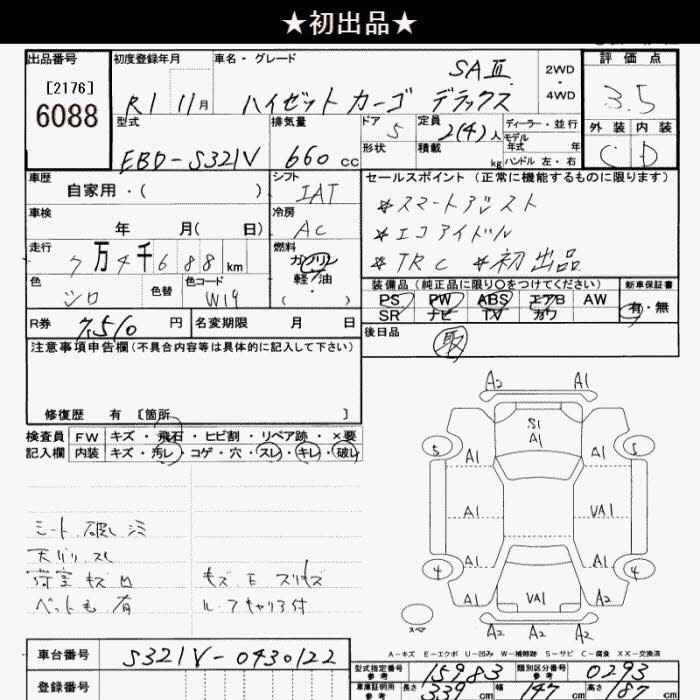 ★初出品★
出品番号 初度登録年月 車名・グレード 評価点
[2176]
6088
R1 11月 ハイゼット カーゴ デラックス SAⅢ 2WD・4WD 3.5
型式 排気量 ドア 5 定員 2(4)人 ディーラー・並行 外装 内装
EBD-S321V 660cc 形状 積載 kg モデル年式 年 ハンドル 左・右 C D
車歴 シフト セールスポイント (正常に機能するものに限ります)
自家用・( ) IAT ☆スマートアシスト
車検 冷房 ☆エコアイドル
年 月( 日) AC ☆TRC ☆初出品
走行 燃料
7万4千688km ガソリン 軽油・( )
色 色替 色コード 装備品 (純正品に限り○をつけてください) 新車保証書
シロ W19 PS PW ABS エアB AW 有・無
SR ナビ TV カワ
R券 7,510円 名変期限 月 日 後日品
取
注意事項申告欄 (不具合内容等は具体的に記入して下さい)
修復歴 有 [箇所 ]
A2 A1
S1
A1
5 A1 A1 5
A1 VA1
A1 A1
4 4
VA1
A2 A2 A2
スペア
検査員 FW キズ・飛石・ヒビ割・リペア跡・×要
記入欄 内装 キズ・汚レ・コゲ・穴・スレ・キレ・破レ
シート破レ シミ
天バリ スレ
荷室キズ凹 キズ E スリキズ
ペット毛 有 ルーフキャリア付
A-キズ E-エクボ U-凹み W-補修跡 S-サビ C-腐食 XX-交換済
車台番号 S321V-0430122
型式指定番号 参考 15983 類別区分番号 参考 0293
登録番号 車庫証明用 参考 長さ 339cm 幅 147cm 高さ 187cm